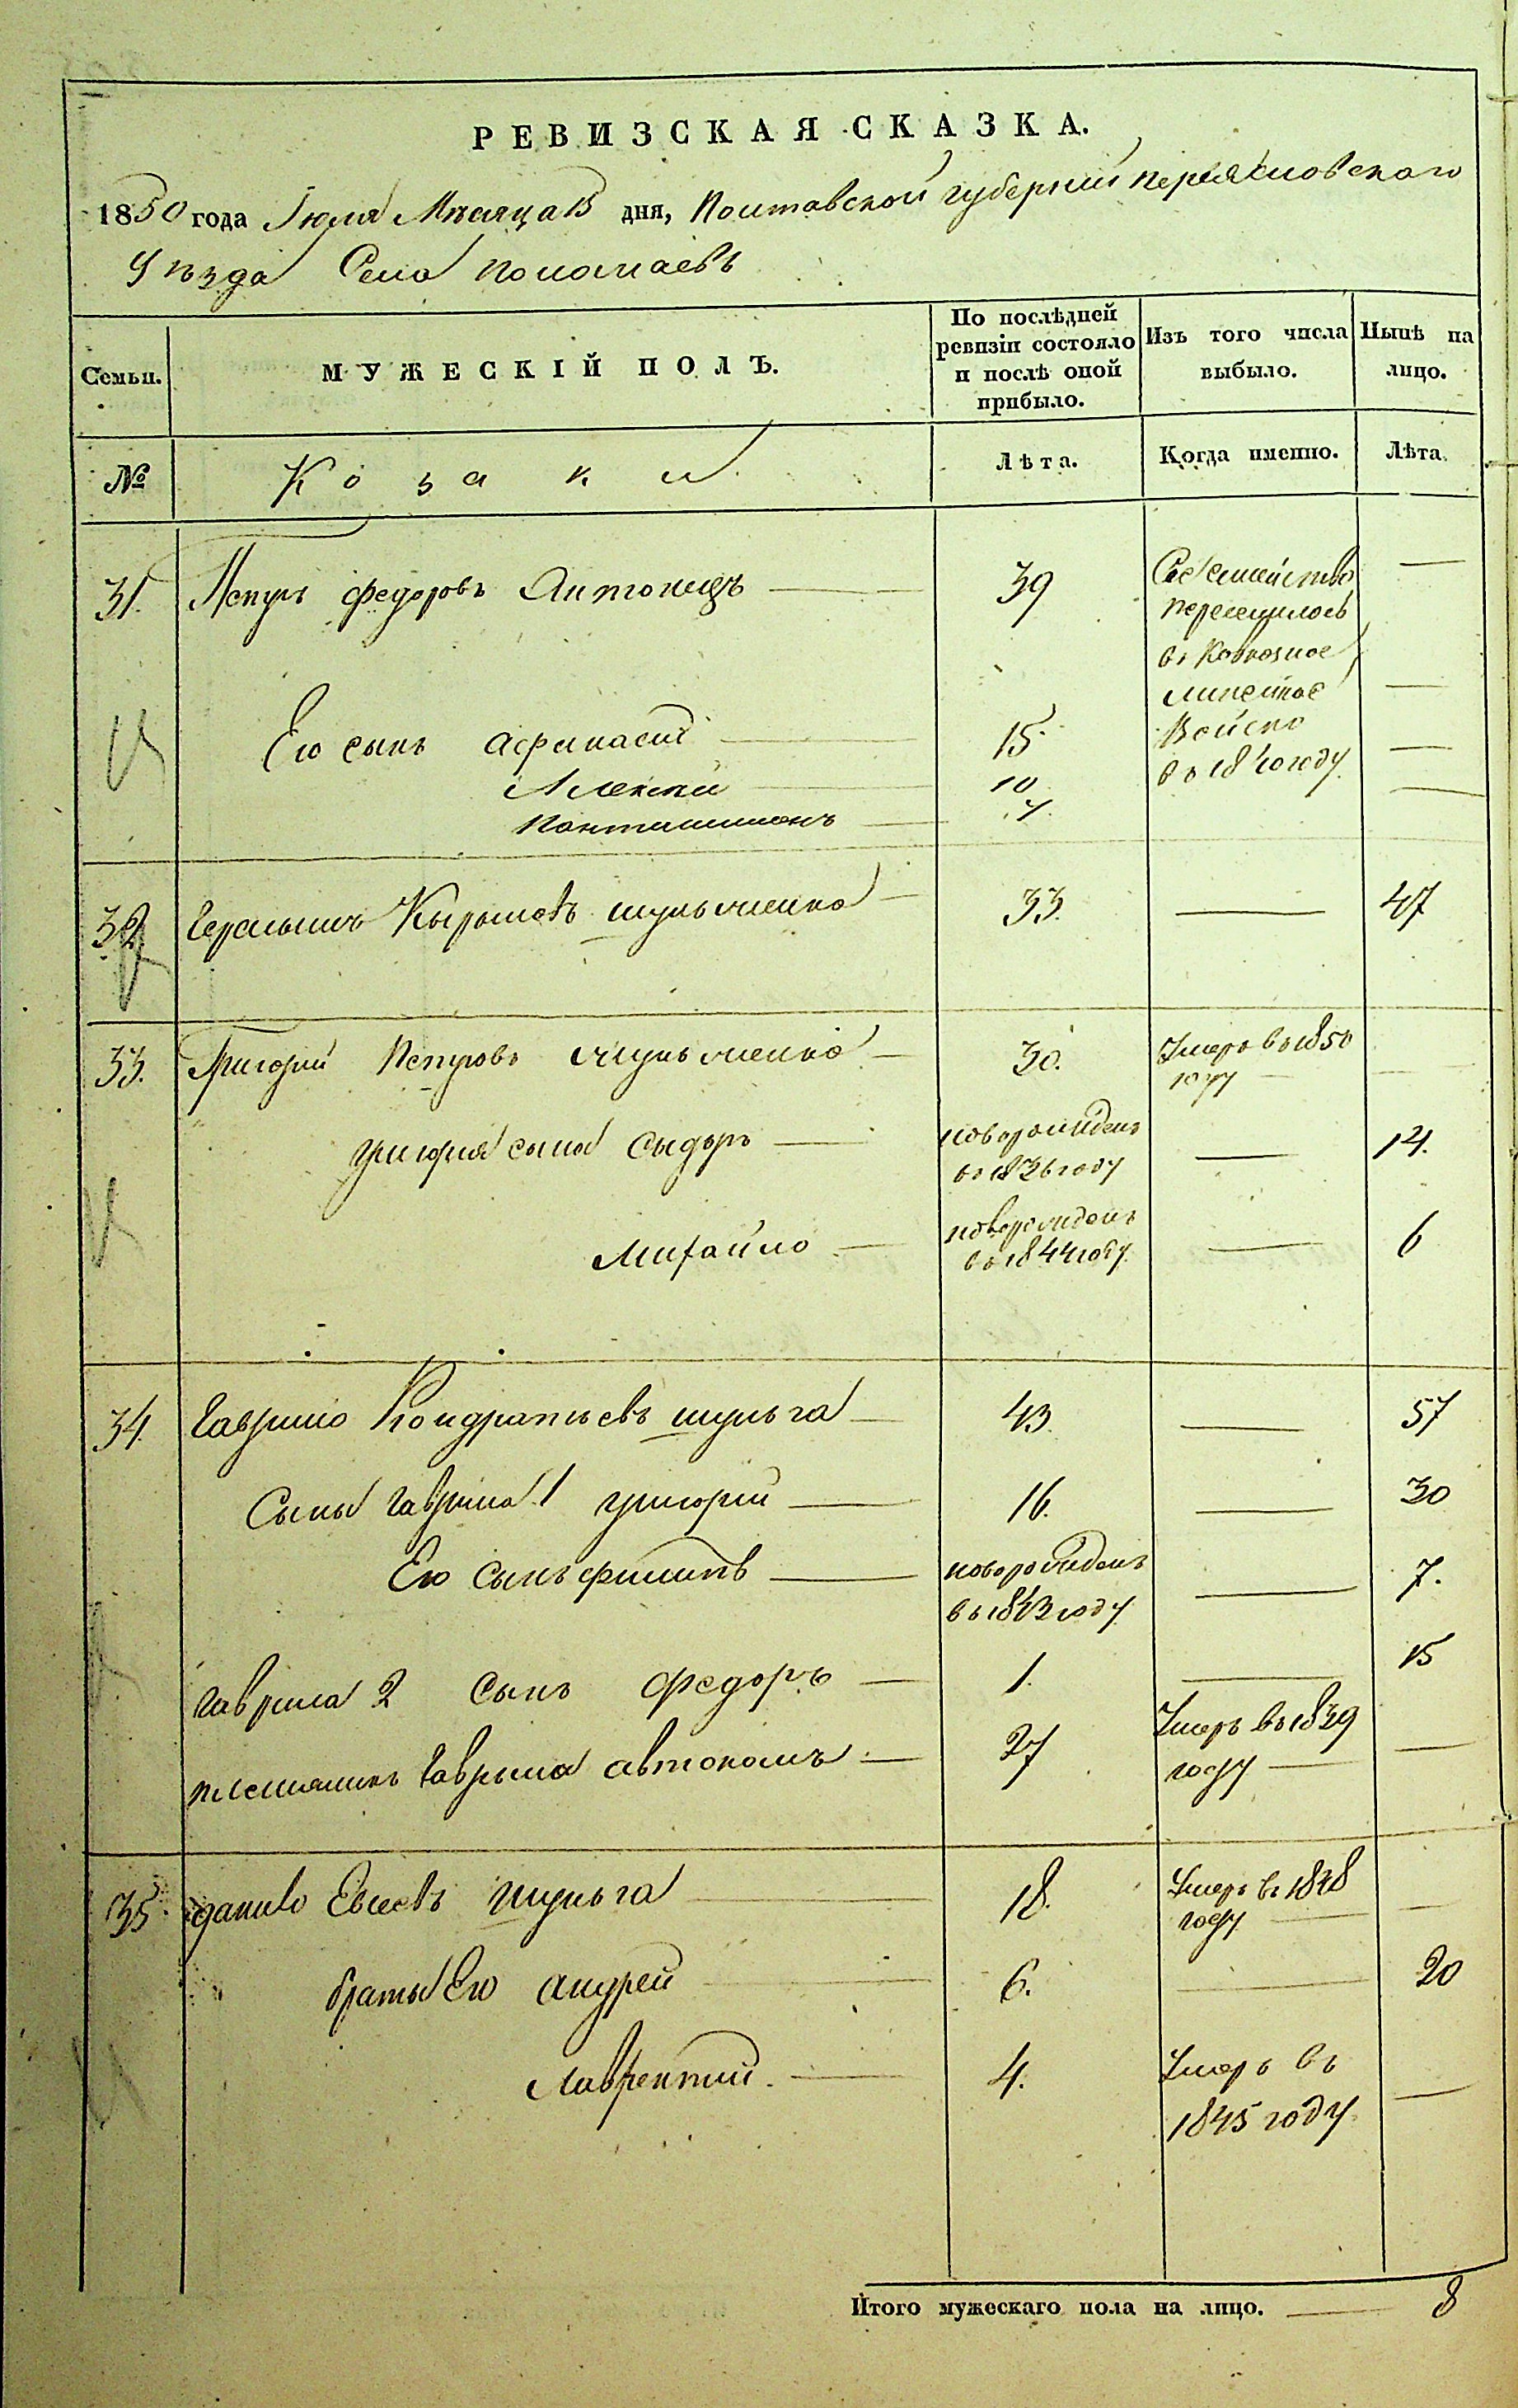 РЕВИЗСКАЯ СКАЗКА.
1850 года Іюля Мѣсяца 15 дня, Полтавской губерніи Переясловскаго
Уѣзда Села Положаевъ
Семьи. МУЖЕСКІЙ ПОЛЪ. По послѣдней ревизіи состояло и послѣ оной прибыло. Изъ того числа выбыло. Нынѣ на лицо.
№ Козаки Лѣта. Когда именно. Лѣта.
31. Петръ Федоровъ Антонецъ — 39 Сие семейство —
переселилось
въ Кавказное
линейное —
Его сынъ Афанасій — 15. Войско
въ 1840 году. —
Алексѣй — 10
Пантилимонъ — 4. —
32 Герасимъ Кириловъ Шульженко — 33. — 47
33. Григорій Петровъ Шульженко — 30. Умеръ въ 1850
году — —
Григорія сыны Сыдоръ — новорожденъ
въ 1836 году — 14.
Михайло — новорожденъ
въ 1844 году. — 6
34. Гаврило Кондратьевъ Шульга — 43. — 57
Сыны Гаврила 1 Григорій — 16. — 30
Его сынъ Филипъ — новорожденъ
въ 1843 году. — 7.
Гаврила 2 сынъ Федоръ — 1. — 15
племянникъ Гаврила Автономъ — 27 Умеръ въ 1839
году — —
35. Данило Евсеевъ Шульга — 18. Умеръ въ 1848
году — —
браты Его Андрей — 6. — 20
Лаврентій. — 4. Умеръ въ
1845 году. —
Итого мужескаго пола на лицо. — 8